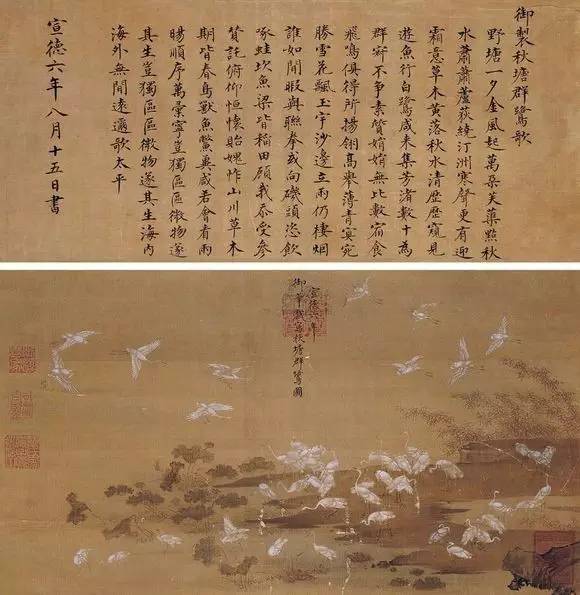 御製秋塘群鷺歌
野塘一夕金風起萬朶芙蕖點秋
水蕭蕭蘆荻繞汀洲寒聲更有迎
霜意草木黃落秋水清歷歷窺見
遊魚行白鷺咸来集芳渚數十為
群寂不爭素質娟娟無比數宿食
飛鳴俱得所揚翎高舉薄青冥宛
勝雪花飄玉宇沙邊立雨仍棲烟
誰如閒暇與聯拳或向磯頭恣飲
啄蛙坎魚梁皆稻田顧我忝受參
贊託俯仰恒懷貽婢怍山川草木
期皆春鳥獸魚鱉冀咸若會看雨
暘順序萬彙寧豈獨區區微物遂
其生豈獨區區微物遂其生海内
海外無間遠邇歌太平
宣德六年八月十五日書
宣德六年
御筆戲寫秋塘群鷺圖